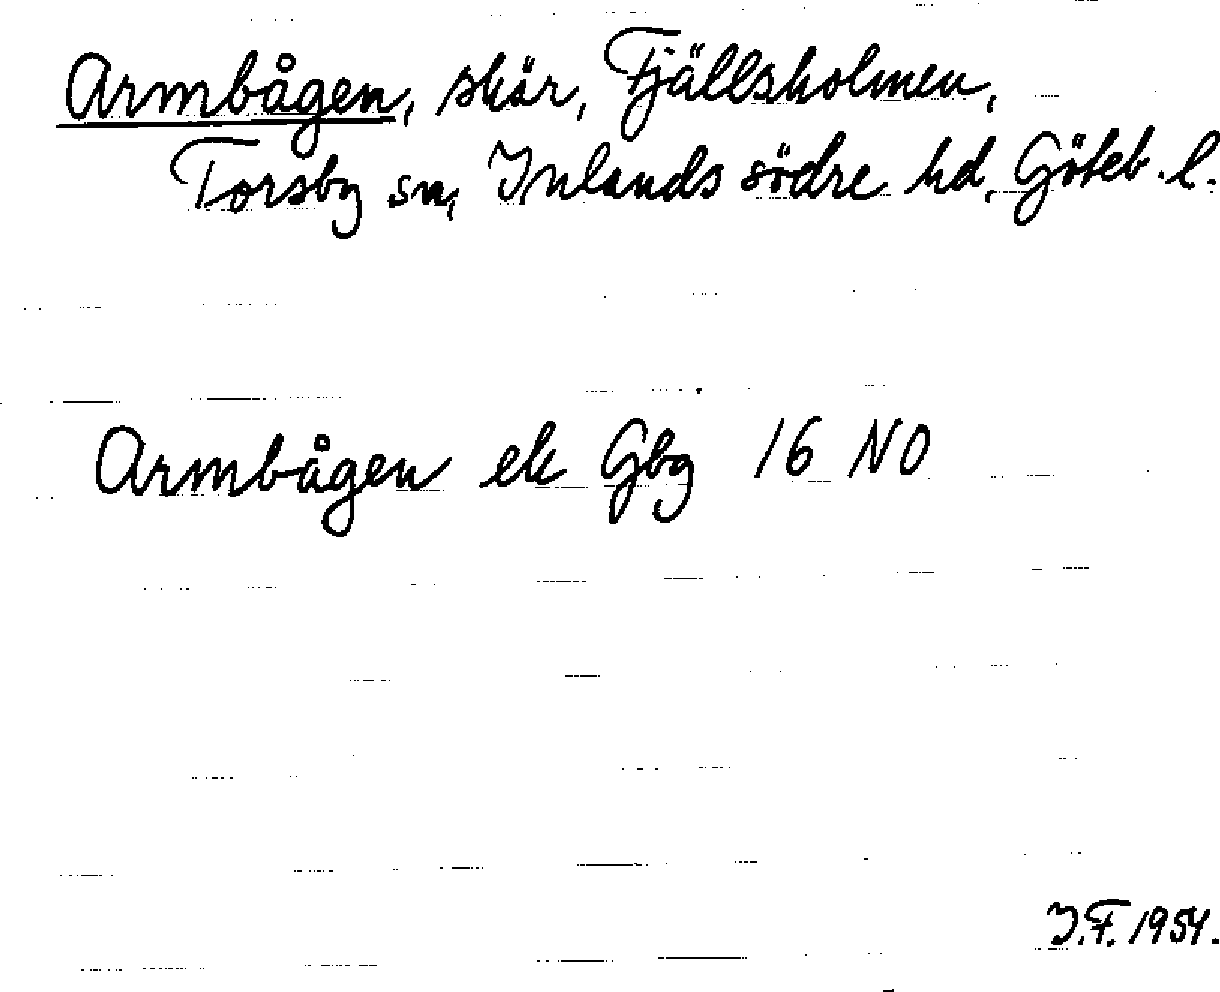 Armbågen, skär, Fjällsholmen,
Torsby sn, Inlands södre hd, Göteb. l.
Armbågen ek Gbg 16 NO
I.F. 1954.